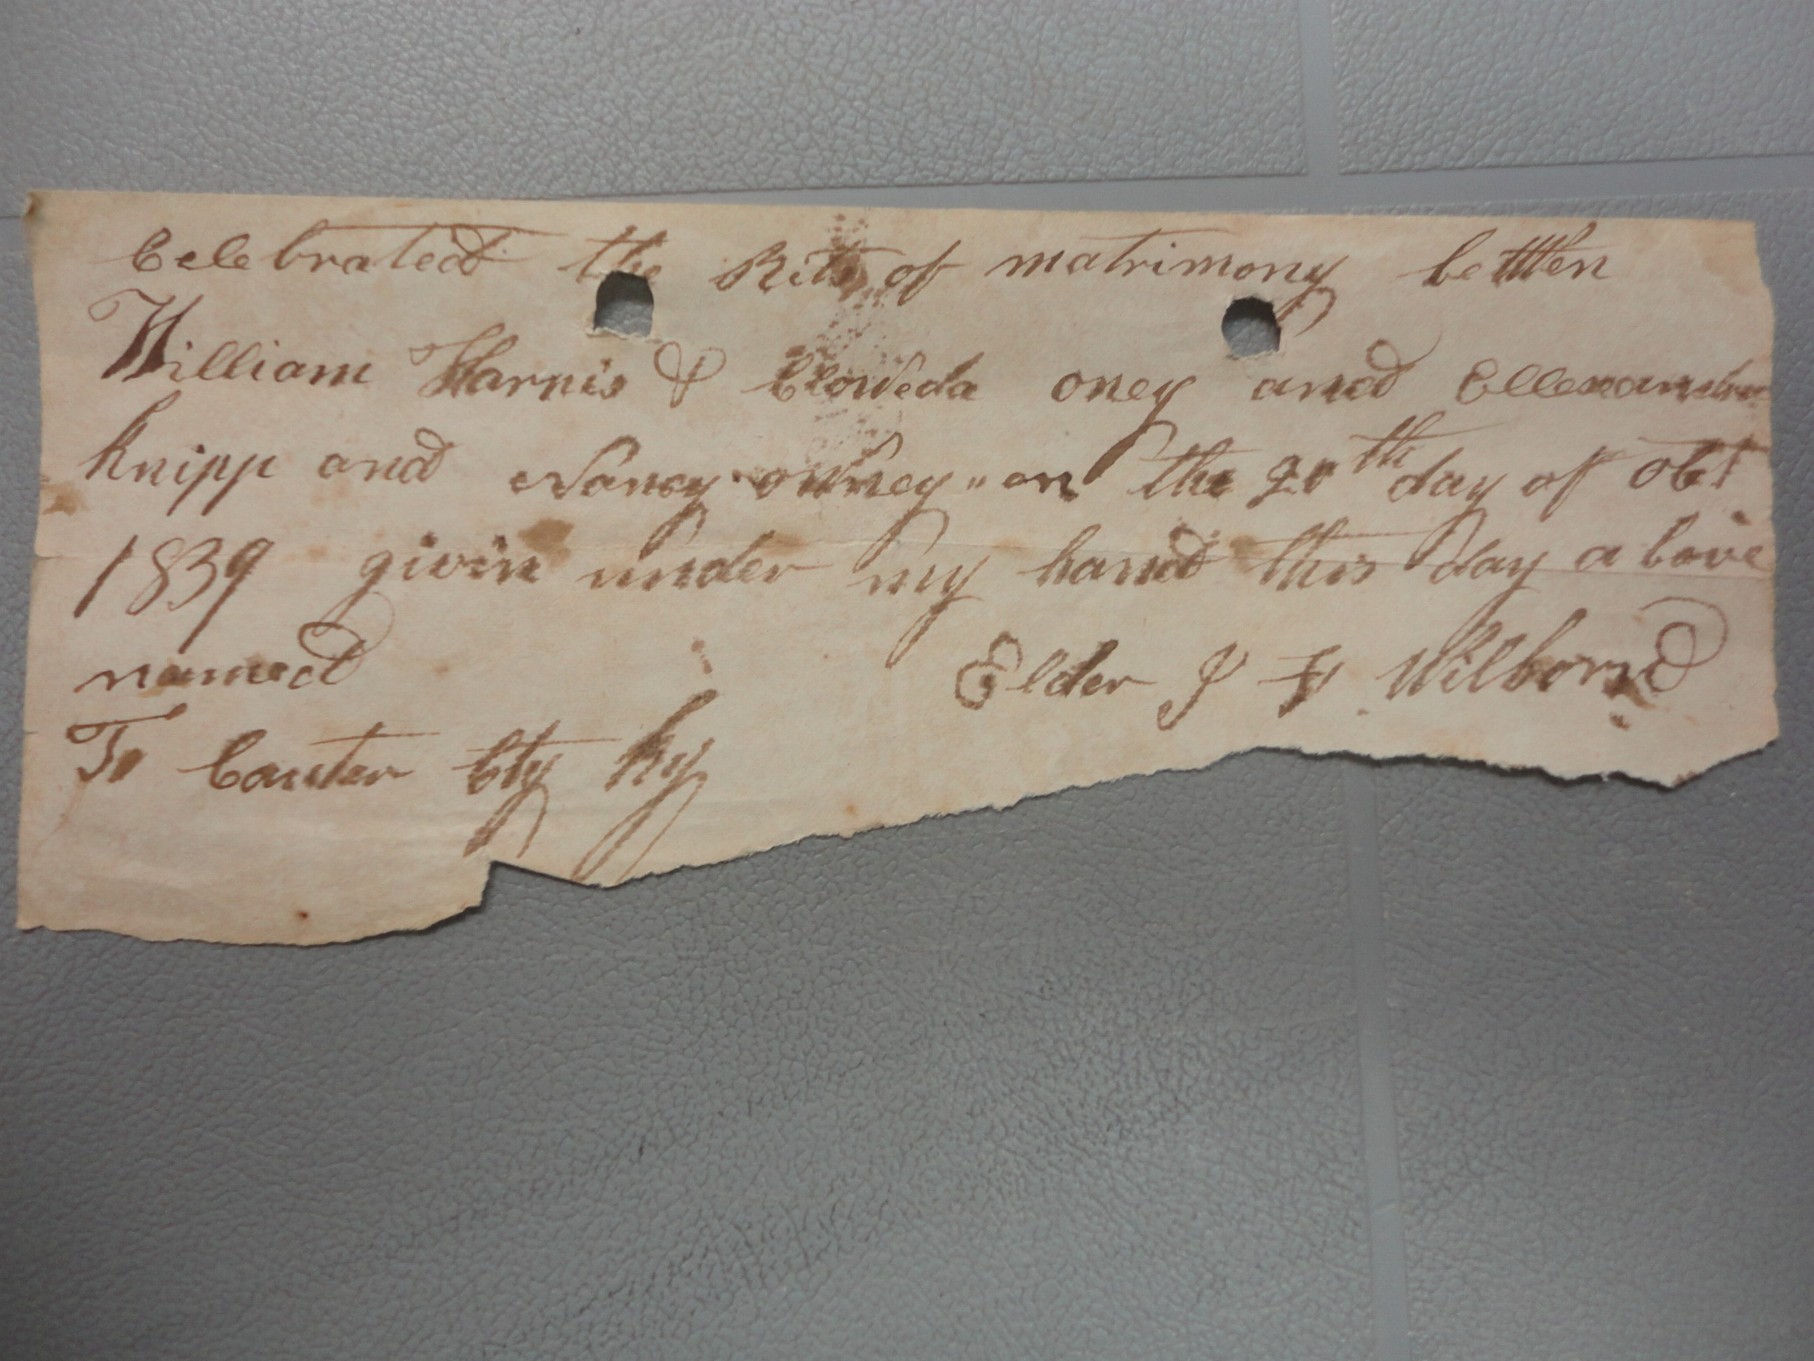 Celebrated the Rits of matrimony bettten
William Harris & Cloweda oney and Ellexander
Knipp and Nancy owney " on the 20th day of Obt
1839 givin under my hand this day a bove
named Elder J F Wilbornd
To Cauter Cty Ky